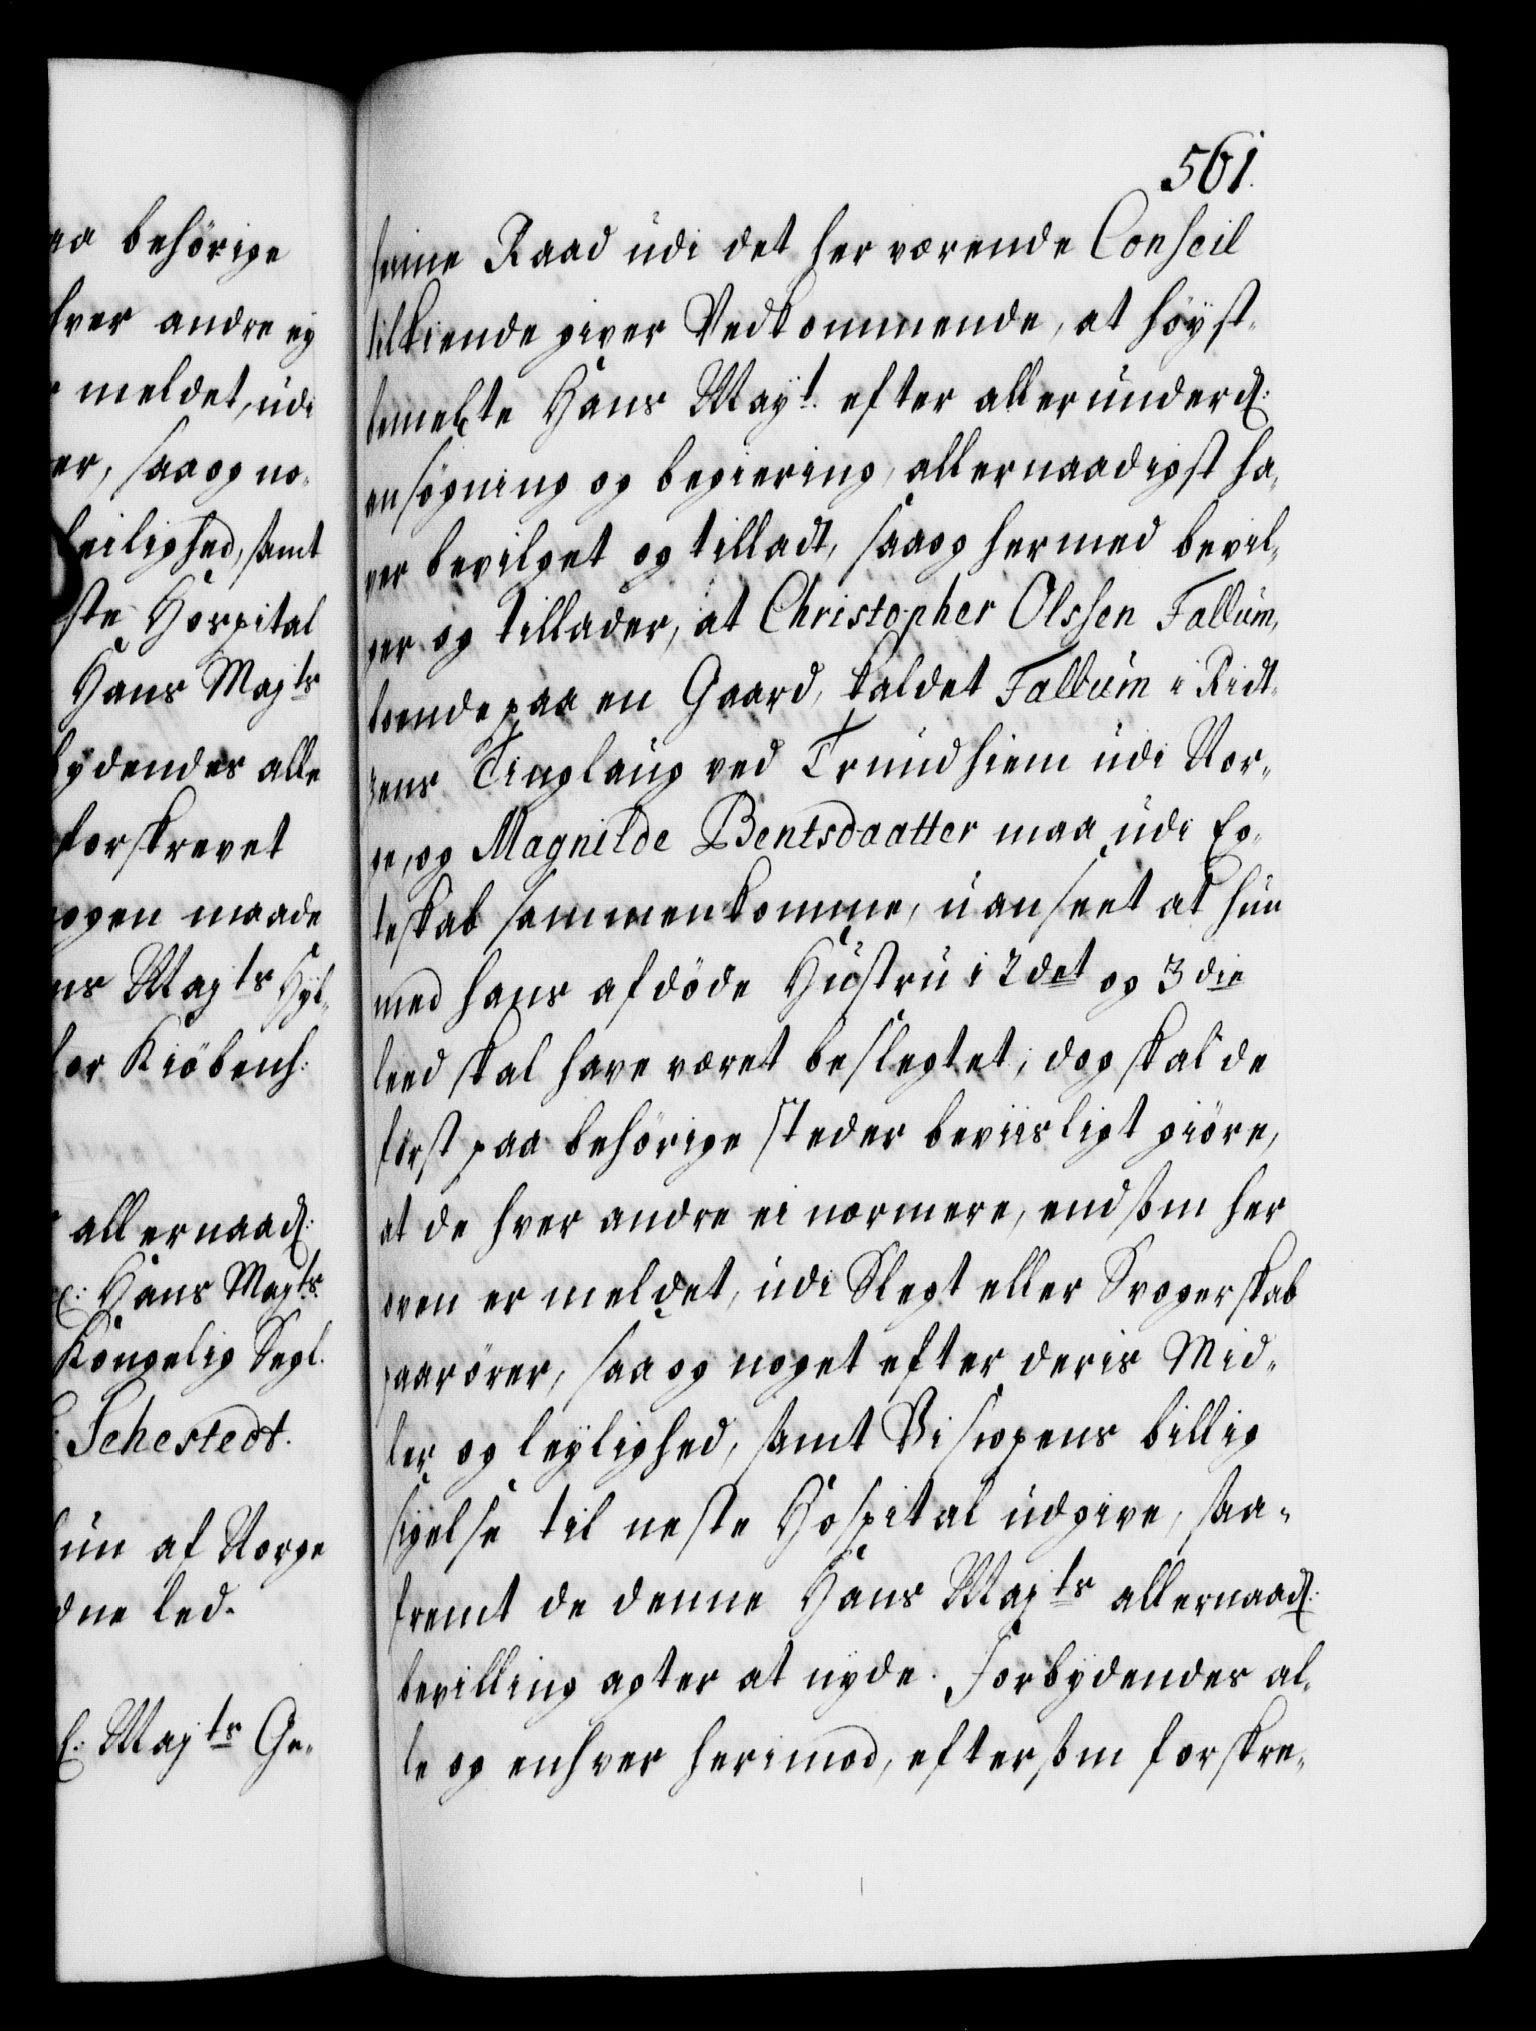 aa behörige
hver andre ey
meldet, udi
er, saa og no-
leilighed, samt
ste Hospital
Hans Majts
bydendes alle
forskrevet
ogen maade
ns Majts Hyl-
for Kiöbenh:
allernaad:
Hans Majts
Kongelig Segl.
Sehestedt.
un af Norge
dne led.
Majts Ge-
561.
heime Raad udi det her værende Conseil
tilkiende giver Vedkommende, at höyst-
bemelte Hans Mayt. efter allerunderd:
ansögning og begiering, allernaadigst ha-
ver bevilget og tilladt, saa og hermed bevil-
ger og tillader, at Christopher Olssen Fallum,
boende paa en Gaard, kaldet Fallum i Ridt-
zens Tinglaug ved Trundhiem udi Nor-
ge, og Magnilde Bentsdaatter maa udi Eg-
teskab sammenkomme, uanseet at hun
med hans afdöde Hustru i 2det og 3die
leed skal have været beslegtet; dog skal de
först paa behörige steder beviisligt giöre,
at de hver andre ei nærmere, end som her
oven er meldet, udi Slegt eller Svogerskab
paarörer, saa og noget efter deris Mid-
ler og leylighed, samt Biscopens billig
sigelse til neste Hospital udgive, saa-
fremt de denne Hans Majts allernaad:
bevilling agter at nyde. Forbydendes al-
le og enhver herimod, eftersom forskre-